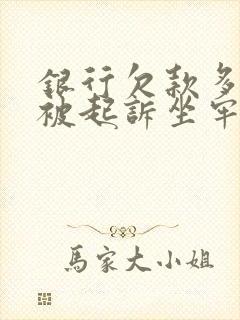 銀行欠款多
被起訴坐牢
馬家大小姐